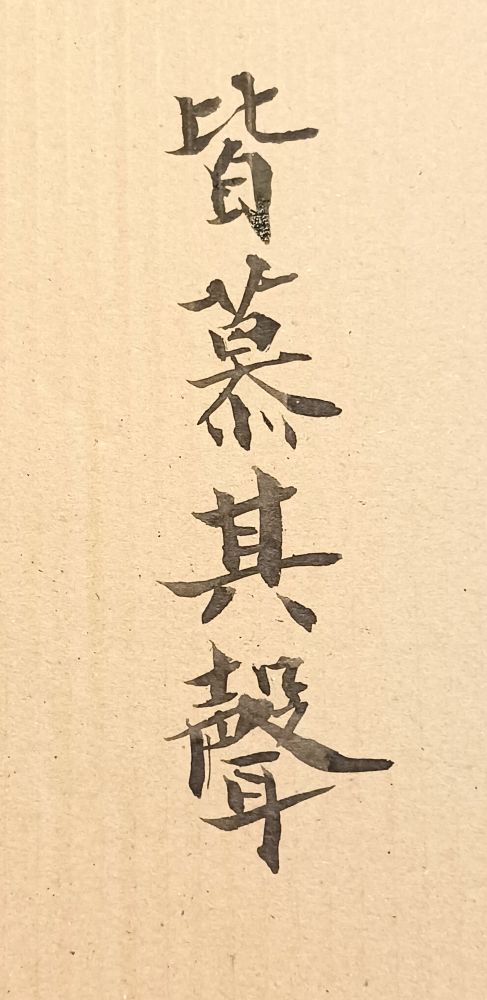 皆慕其聲